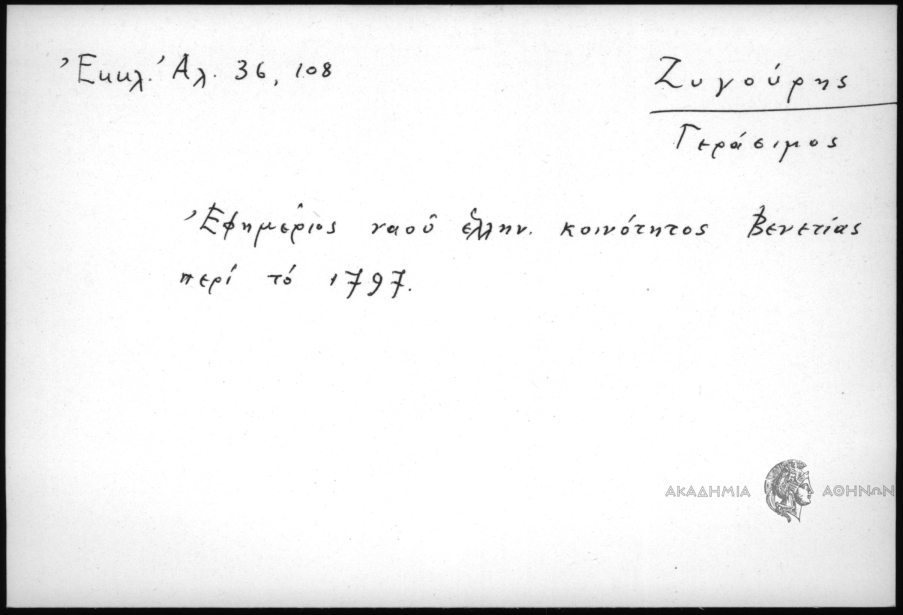 Ἐκκλ. Ἀλ. 36, 108
Ζυγούρης
Γεράσιμος
Ἐφημέριος ναοῦ ἑλλην. κοινότητος Βενετίας
περί τό 1797.
ΑΚΑΔΗΜΙΑ ΑΘΗΝΩΝ